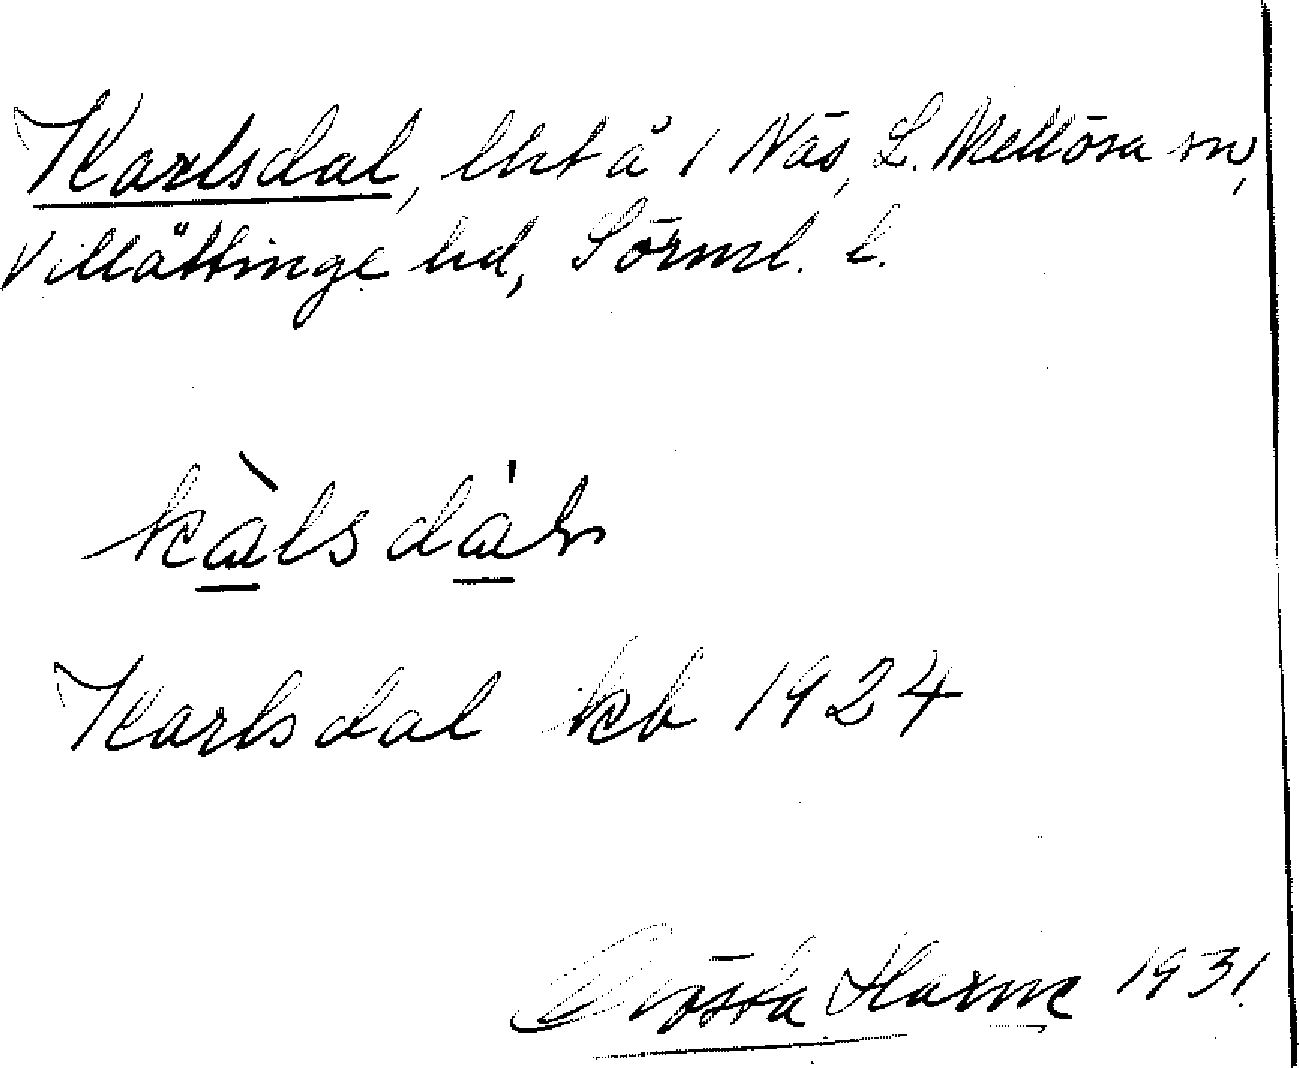 Karlsdal, lht å 1 Näs, L. Mellösa sn,
Villåttinge hd, Sörml. l.
kàlsdáls
Karlsdal kb 1924
Gösta Harme 1931.